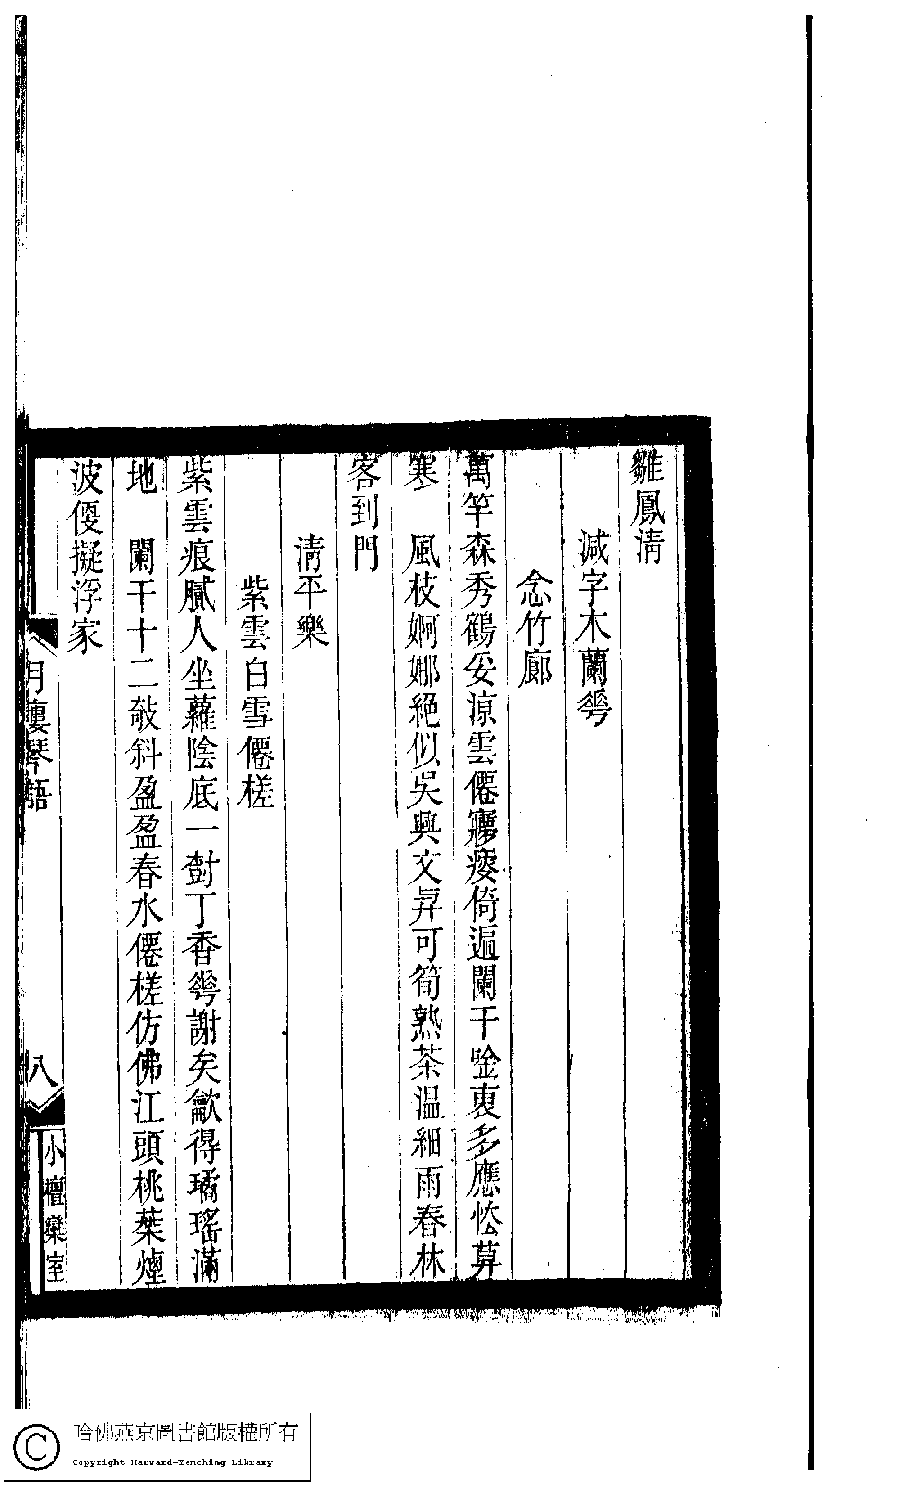 雛鳳淸
減字木蘭蕚
念竹廊
萬竿森秀鶴妥凉雲僊㝱瘦倚遍闌干
寒　風枝婀娜絕似吳興文昇可筍熟茶温細雨春林
客到門
淸平樂
紫雲白雪僊槎
紫雲痕膩人坐蘿陰底一尌丁香蕚謝矣歙得璚瑤滿
地　闌干十二敲斜盈盈春水僊槎仿佛江頭桃葉煙
波㑴擬浮家
月樓琴語
八
小檀欒室
哈佛燕京圖書館版權所有
Copyright Harvard-Yenching Library